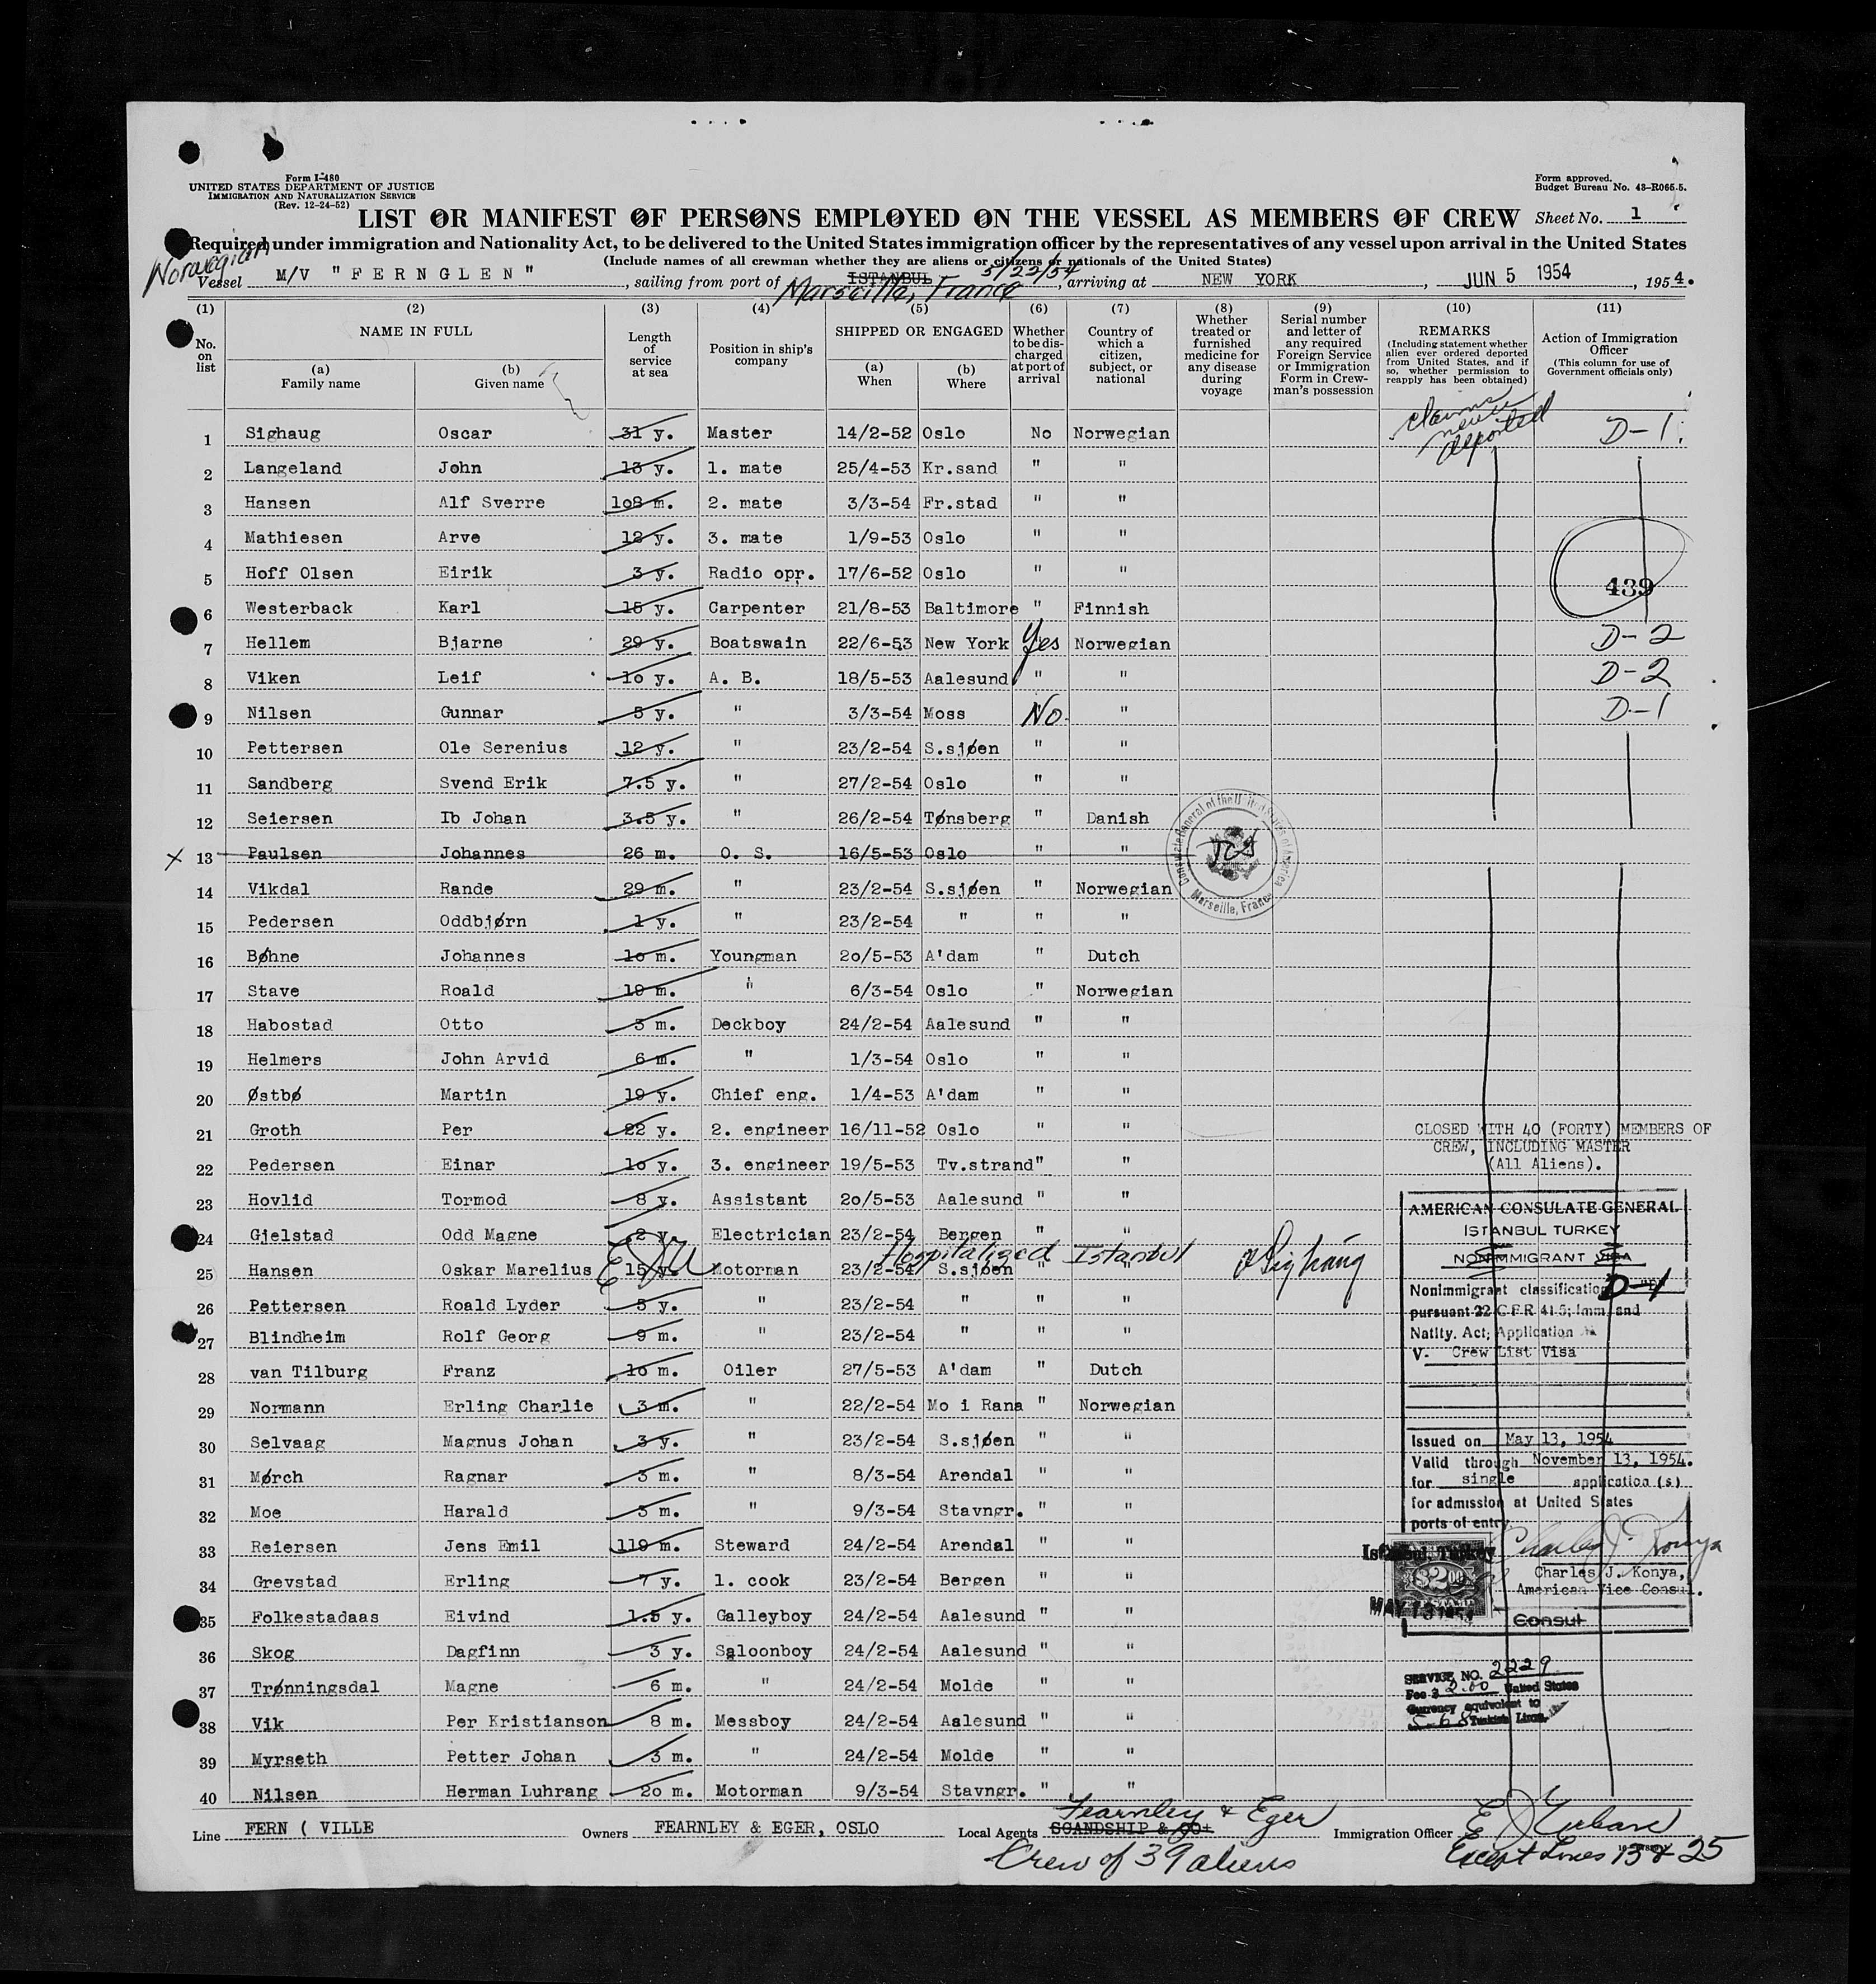 Form I-480
UNITED STATES DEPARTMENT OF JUSTICE
IMMIGRATION AND NATURALIZATION SERVICE
(Rev. 12-24-52)
Form approved.
Budget Bureau No. 43-R065.5.
LIST OR MANIFEST OF PERSONS EMPLOYED ON THE VESSEL AS MEMBERS OF CREW Sheet No. 1
Required under immigration and Nationality Act, to be delivered to the United States immigration officer by the representatives of any vessel upon arrival in the United States
(Include names of all crewman whether they are aliens or citizens or nationals of the United States)
Norwegian
5/22/54
Vessel M/V "FERNGLEN", sailing from port of ISTANBUL Marseille, France, arriving at NEW YORK, JUN 5 1954, 1954.
(1) (2) (3) (4) (5) (6) (7) (8) (9) (10) (11)
No. on list
NAME IN FULL
(a) Family name
(b) Given name
Length of service at sea
Position in ship's company
SHIPPED OR ENGAGED
(a) When
(b) Where
Whether to be discharged at port of arrival
Country of which a citizen, subject, or national
Whether treated or furnished medicine for any disease during voyage
Serial number and letter of any required Foreign Service or Immigration Form in Crewman's possession
REMARKS
(Including statement whether alien ever ordered deported from United States, and if so, whether permission to reapply has been obtained)
Action of Immigration Officer
(This column for use of Government officials only)
1 Sighaug Oscar 31 y. Master 14/2-52 Oslo No Norwegian claims never deported D-1
2 Langeland John 13 y. 1. mate 25/4-53 Kr.sand " "
3 Hansen Alf Sverre 108 m. 2. mate 3/3-54 Fr.stad " "
4 Mathiesen Arve 12 y. 3. mate 1/9-53 Oslo " "
5 Hoff Olsen Eirik 3 y. Radio opr. 17/6-52 Oslo " " 439
6 Westerback Karl 15 y. Carpenter 21/8-53 Baltimore " Finnish
7 Hellem Bjarne 29 y. Boatswain 22/6-53 New York Yes Norwegian D-2
8 Viken Leif 10 y. A. B. 18/5-53 Aalesund " " D-2
9 Nilsen Gunnar 5 y. " 3/3-54 Moss No " D-1
10 Pettersen Ole Serenius 12 y. " 23/2-54 S.sjøen " "
11 Sandberg Svend Erik 7.5 y. " 27/2-54 Oslo " "
12 Seiersen Ib Johan 3.5 y. " 26/2-54 Tønsberg " Danish
13 Paulsen Johannes 26 m. O. S. 16/5-53 Oslo " "
Consulate General of the United States of America
Marseille, France
14 Vikdal Rande 29 m. " 23/2-54 S.sjøen " Norwegian
15 Pedersen Oddbjørn 1 y. " 23/2-54 " " "
16 Bøhne Johannes 10 m. Youngman 20/5-53 A'dam " Dutch
17 Stave Roald 19 m. " 6/3-54 Oslo " Norwegian
18 Habostad Otto 3 m. Deckboy 24/2-54 Aalesund " "
19 Helmers John Arvid 6 m. " 1/3-54 Oslo " "
20 Østbø Martin 19 y. Chief eng. 1/4-53 A'dam " "
21 Groth Per 22 y. 2. engineer 16/11-52 Oslo " "
22 Pedersen Einar 10 y. 3. engineer 19/5-53 Tv.strand " "
23 Hovlid Tormod 8 y. Assistant 20/5-53 Aalesund " "
24 Gjelstad Odd Magne 2 y. Electrician 23/2-54 Bergen " "
Hospitalized Istanbul OSighaug
25 Hansen Oskar Marelius 15 y. Motorman 23/2-54 S.sjøen " "
26 Pettersen Roald Lyder 5 y. " 23/2-54 " " "
27 Blindheim Rolf Georg 9 m. " 23/2-54 " " "
28 van Tilburg Franz 10 m. Oiler 27/5-53 A'dam " Dutch
29 Normann Erling Charlie 3 m. " 22/2-54 Mo i Rana " Norwegian
30 Selvaag Magnus Johan 3 y. " 23/2-54 S.sjøen " "
31 Mørch Ragnar 3 m. " 8/3-54 Arendal " "
32 Moe Harald 3 m. " 9/3-54 Stavngr. " "
33 Reiersen Jens Emil 119 m. Steward 24/2-54 Arendal " "
34 Grevstad Erling 7 y. 1. cook 23/2-54 Bergen " "
35 Folkestadaas Eivind 1.5 y. Galleyboy 24/2-54 Aalesund " "
36 Skog Dagfinn 3 y. Saloonboy 24/2-54 Aalesund " "
37 Trønningsdal Magne 6 m. " 24/2-54 Molde " "
38 Vik Per Kristianson 8 m. Messboy 24/2-54 Aalesund " "
39 Myrseth Petter Johan 3 m. " 24/2-54 Molde " "
40 Nilsen Herman Luhrang 20 m. Motorman 9/3-54 Stavngr. " "
CLOSED WITH 40 (FORTY) MEMBERS OF
CREW, INCLUDING MASTER
(All Aliens).
AMERICAN CONSULATE GENERAL
ISTANBUL TURKEY
NONIMMIGRANT VISA
Nonimmigrant classification D-1
pursuant 22 C.F.R. 41.5; Imm. and
Natlty. Act; Application
V. Crew List Visa
Issued on May 13, 1954
Valid through November 13, 1954.
for single application (s)
for admission at United States
ports of entry.
Istanbul, Turkey
$2.00
MAY 13 1954
Charles J. Konya
Charles J. Konya,
American Vice Consul.
Consul
SERVICE NO. 2229
Fee $ 2.00 United States
Currency equivalent to
5.68 Turkish Liras.
Line FERN ( VILLE Owners FEARNLEY & EGER, OSLO Local Agents SCANDSHIP & CO+ Fearnley & Eger Immigration Officer E J Urban
Crew of 39 aliens
Except Lines 13 & 25